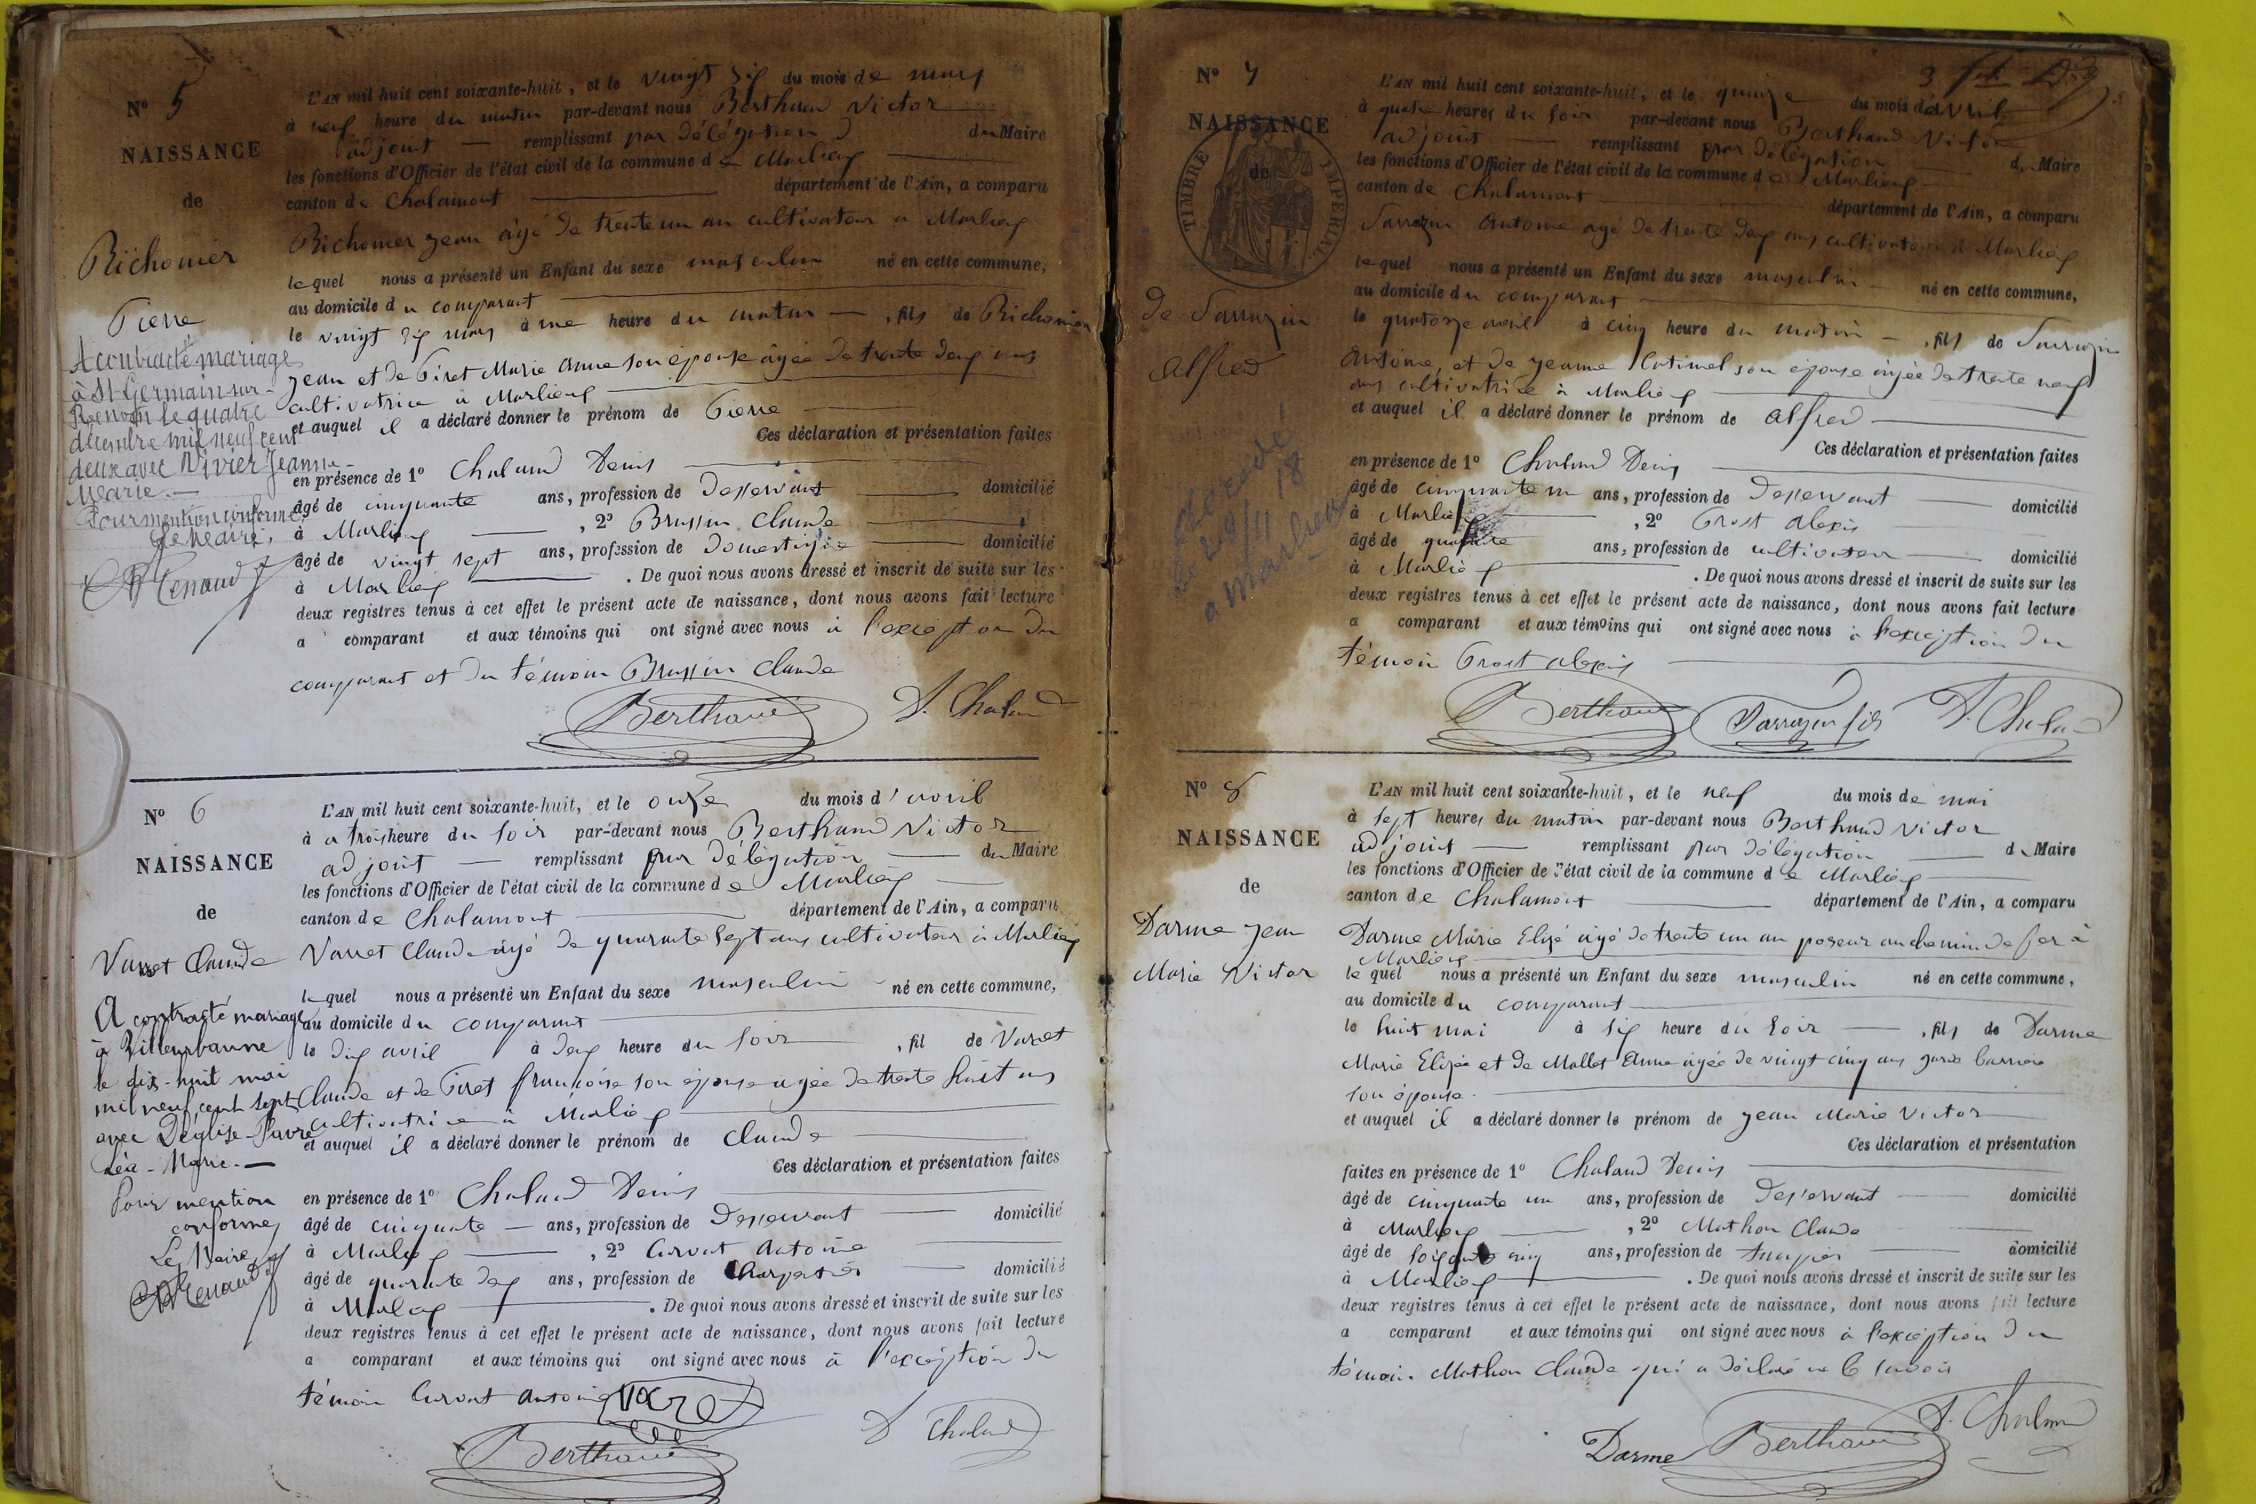 N° 5
NAISSANCE
de
Richomier
Pierre
A contracté mariage
à St Germain-sur-
Renom le quatre
décembre mil neuf cent
deux avec Vivier Jeanne
Marie.—
Pour mention conforme,
Le Maire,
L'AN mil huit cent soixante-huit, et le vingt six du mois de mars
à neuf heure du matin par-devant nous Berthaud Victor
adjoint — remplissant par délégation du Maire
les fonctions d'Officier de l'état civil de la commune de Marlieux
canton de Chalamont département de l'Ain, a comparu
Richomier Jean âgé de trente un an cultivateur à Marlieux
lequel nous a présenté un Enfant du sexe masculin né en cette commune,
au domicile du comparant
le vingt six mars à une heure du matin — , fils de Richomier
Jean et de Piret Marie Anne son épouse âgée de trente deux ans
cultivatrice à Marlieux
et auquel il a déclaré donner le prénom de Pierre
Ces déclaration et présentation faites
en présence de 1° Chaland Denis
âgé de cinquante ans, profession de Desservant domicilié
à Marlieux , 2° Brussin Claude
âgé de vingt sept ans, profession de Domestique domicilié
à Marlieux . De quoi nous avons dressé et inscrit de suite sur les
deux registres tenus à cet effet le présent acte de naissance, dont nous avons fait lecture
a comparant et aux témoins qui ont signé avec nous à l'exception du
comparant et du témoin Brussin Claude
Berthaud D. Chaland
N° 6
NAISSANCE
de
Varret Claude
A contracté mariage
à Villeurbanne
le dix-huit mai
mil neuf cent sept
avec Déglise-Favre
Léa-Marie.—
Pour mention
conforme,
Le Maire,
L'AN mil huit cent soixante-huit, et le onze du mois d'avril
à trois heure du soir par-devant nous Berthaud Victor
adjoint — remplissant par délégation du Maire
les fonctions d'Officier de l'état civil de la commune de Marlieux
canton de Chalamont département de l'Ain, a comparu
Varret Claude âgé de quarante sept ans cultivateur à Marlieux
lequel nous a présenté un Enfant du sexe masculin né en cette commune,
au domicile du comparant
le dix avril à deux heure du soir , fil de Varret
Claude et de Piret françoise son épouse âgée de trente huit ans
cultivatrice à Marlieux
et auquel il a déclaré donner le prénom de Claude
Ces déclaration et présentation faites
en présence de 1° Chaland Denis
âgé de cinquante — ans, profession de Desservant domicilié
à Marlieux , 2° Curvat Antoine
âgé de quarante deux ans, profession de Charpentier domicilié
à Marlieux . De quoi nous avons dressé et inscrit de suite sur les
deux registres tenus à cet effet le présent acte de naissance, dont nous avons fait lecture
a comparant et aux témoins qui ont signé avec nous à l'exception du
témoin Curvat Antoine
Berthaud D Chaland
N° 7
NAISSANCE
de
TIMBRE IMPERIAL
de Sarrazin
Alfred
Décédé
le 28/11 18
a Marlieux
L'AN mil huit cent soixante-huit, et le quinze du mois d'avril
à quatre heures du soir par-devant nous Berthaud Victor
adjoint — remplissant par délégation du Maire
les fonctions d'Officier de l'état civil de la commune de Marlieux
canton de Chalamont département de l'Ain, a comparu
Sarrazin Antoine agé de trente deux ans cultivateur à Marlieux
lequel nous a présenté un Enfant du sexe masculin — né en cette commune,
au domicile du comparant
le quatorze avril à cinq heure du matin — , fils de Sarrazin
Antoine, et de Jeanne son épouse âgée de trente neuf
ans cultivatrice à Marlieux
et auquel il a déclaré donner le prénom de Alfred
Ces déclaration et présentation faites
en présence de 1° Chaland Denis
âgé de cinquante un ans, profession de Desservant domicilié
à Marlieux , 2° Prost Alexis
âgé de quarante ans, profession de cultivateur domicilié
à Marlieux . De quoi nous avons dressé et inscrit de suite sur les
deux registres tenus à cet effet le présent acte de naissance, dont nous avons fait lecture
a comparant et aux témoins qui ont signé avec nous à l'exception du
témoin Prost Alexis
Berthaud Sarrazin fils D. Chaland
N° 8
NAISSANCE
de
Darme Jean
Marie Victor
L'AN mil huit cent soixante-huit, et le neuf du mois de mai
à sept heures du matin par-devant nous Berthaud Victor
adjoint — remplissant par délégation du Maire
les fonctions d'Officier de l'état civil de la commune de Marlieux
canton de Chalamont département de l'Ain, a comparu
Darme Marie Elisé âgé de trente un an poseur au chemin de fer à
Marlieux
lequel nous a présenté un Enfant du sexe masculin né en cette commune,
au domicile du comparant
le huit mai à six heure du soir — , fils de Darme
Marie Elisée et de Mallet Anne âgée de vingt cinq ans garde barrière
son épouse
et auquel il a déclaré donner le prénom de Jean Marie Victor
Ces déclaration et présentation
faites en présence de 1° Chaland Denis
âgé de cinquante un ans, profession de Desservant domicilié
à Marlieux , 2° Mathon Claude
âgé de soixante cinq ans, profession de domicilié
à Marlieux . De quoi nous avons dressé et inscrit de suite sur les
deux registres tenus à cet effet le présent acte de naissance, dont nous avons fait lecture
a comparant et aux témoins qui ont signé avec nous à l'exception du
témoin Mathon Claude qui a déclaré ne le savoir
Darme Berthaud D. Chaland